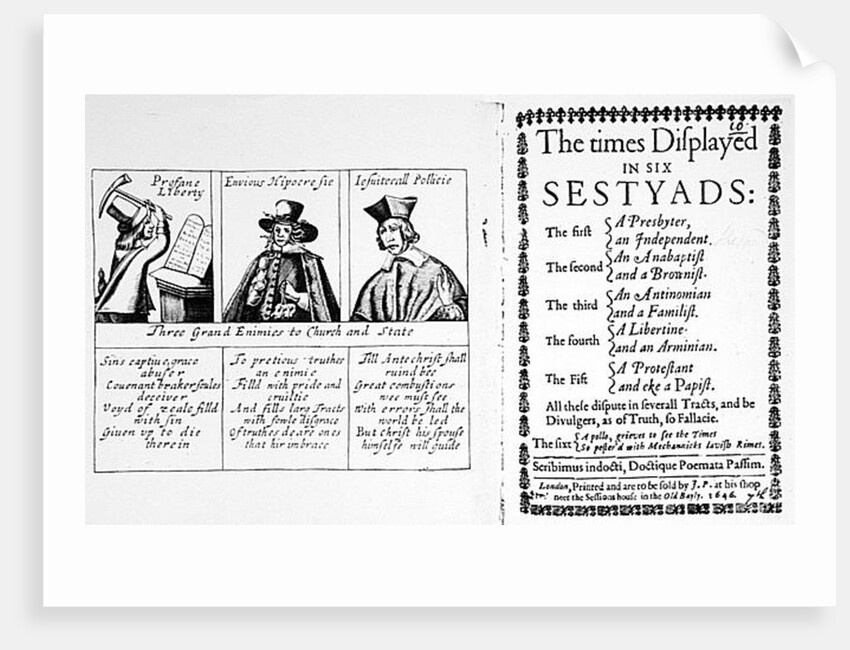 Profane
Liberty
Envious Hipocresie
Iesuiticall Pollicie
Three Grand Enimies to Church and State
Sins captiue, grace
abuser
Couenant braker, soules
deceiver
Voyd of zeale filld
with sin
Giuen up to die
therein
To pretious truthes
an enimie
Filld with pride and
crueltie
And fills larg Tracts
with fowle disgrace
Of truthes deare ones
that hir imbrace
Till Antechrist shall
ruind bee
Great combustions
wee must see
With errors shall the
world be led
But Christ his spouse
himselfe will guide
The times Diſplayed
IN SIX
SESTYADS:
The firſt { A Presbyter,
an Independent.
The ſecond { An Anabaptiſt
and a Browniſt.
The third { An Antinomian
and a Familiſt.
The fourth { A Libertine
and an Arminian.
The Fift { A Proteſtant
and eke a Papiſt.
All theſe diſpute in ſeverall Tracts, and be
Divulgers, as of Truth, ſo Fallacie.
The ſixt { Apollo, grieves to ſee the Times
So peſter'd with Mechannicks laviſh Rimes.
Scribimus indocti, Doctique Poemata Paſſim.
London, Printed and are to be ſold by J. P. at his ſhop
neer the Seſſions houſe in the Old Bayly. 1646.